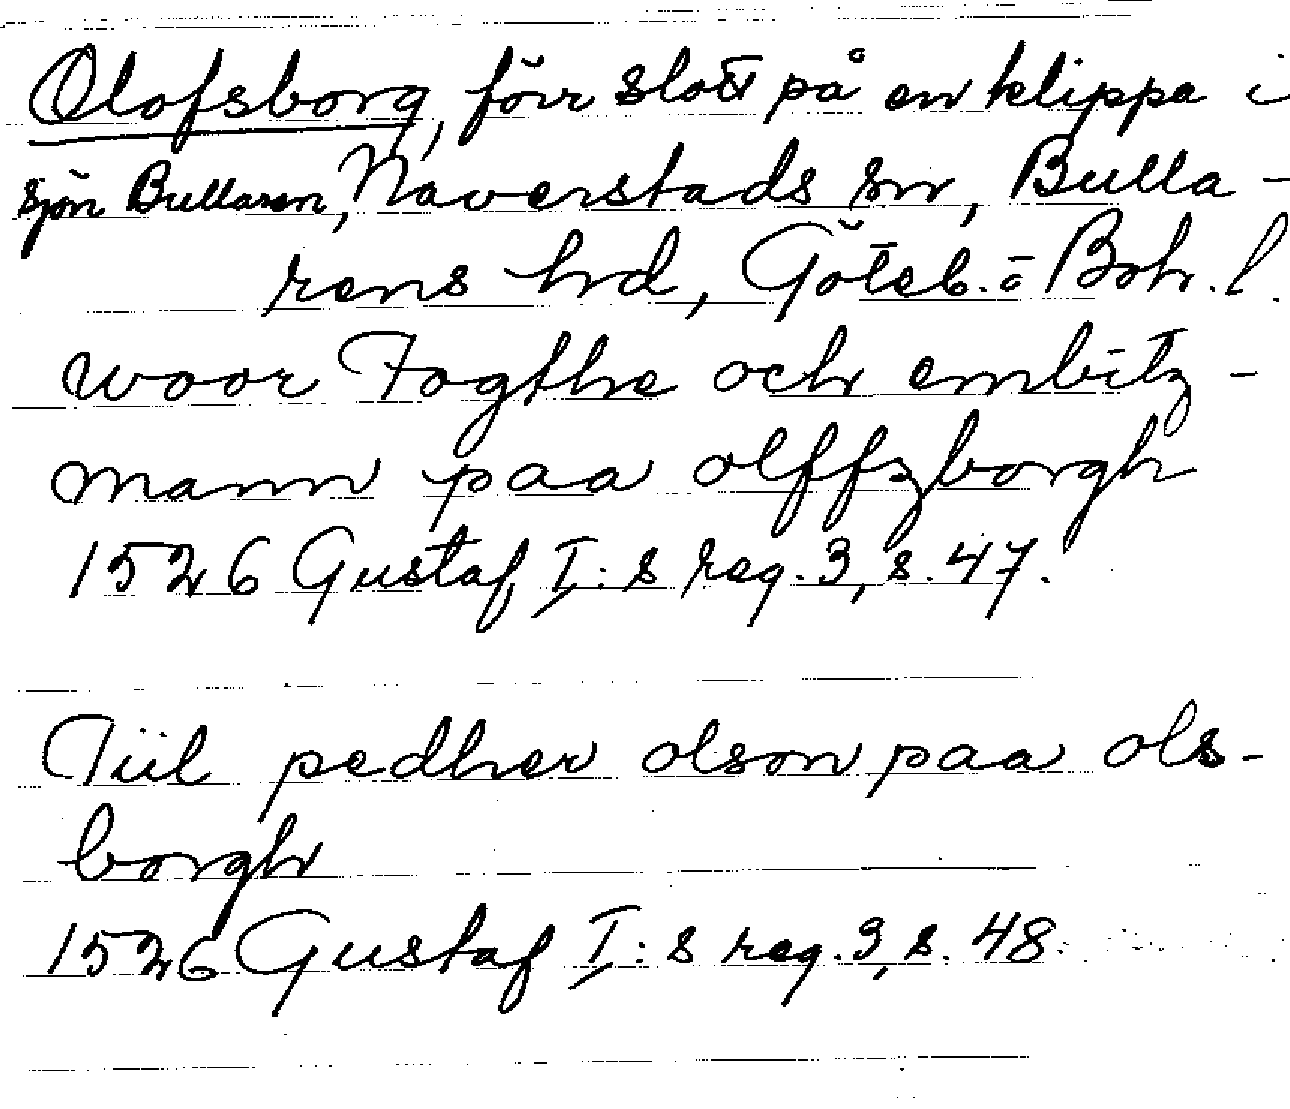 Olofsborg, förr slott på en klippa i
sjön Bullaren, Naverstads sn, Bulla-
rens hd, Göteb. o Boh. l.
woor Fogthe och embitz-
mann paa olffzborgh
1526 Gustaf I:s reg. 3, s. 47.
Tiil pedher olson paa ols-
borgh
1526 Gustaf I:s reg. 3, s. 48.